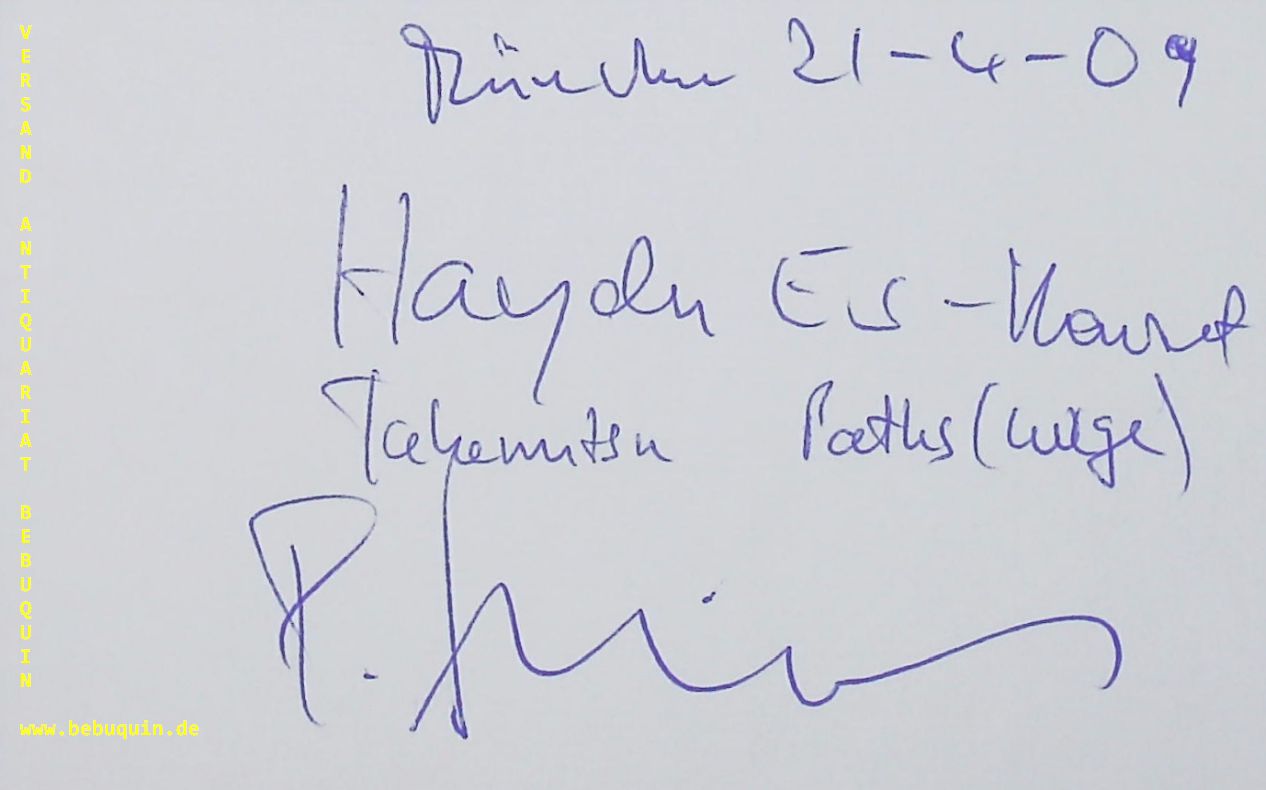 München 21-4-09
Haydn Es-Konzert
Takemitsu Paths (Wege)
P.
VERSAND ANTIQUARIAT BEBUQUIN
www.bebuquin.de